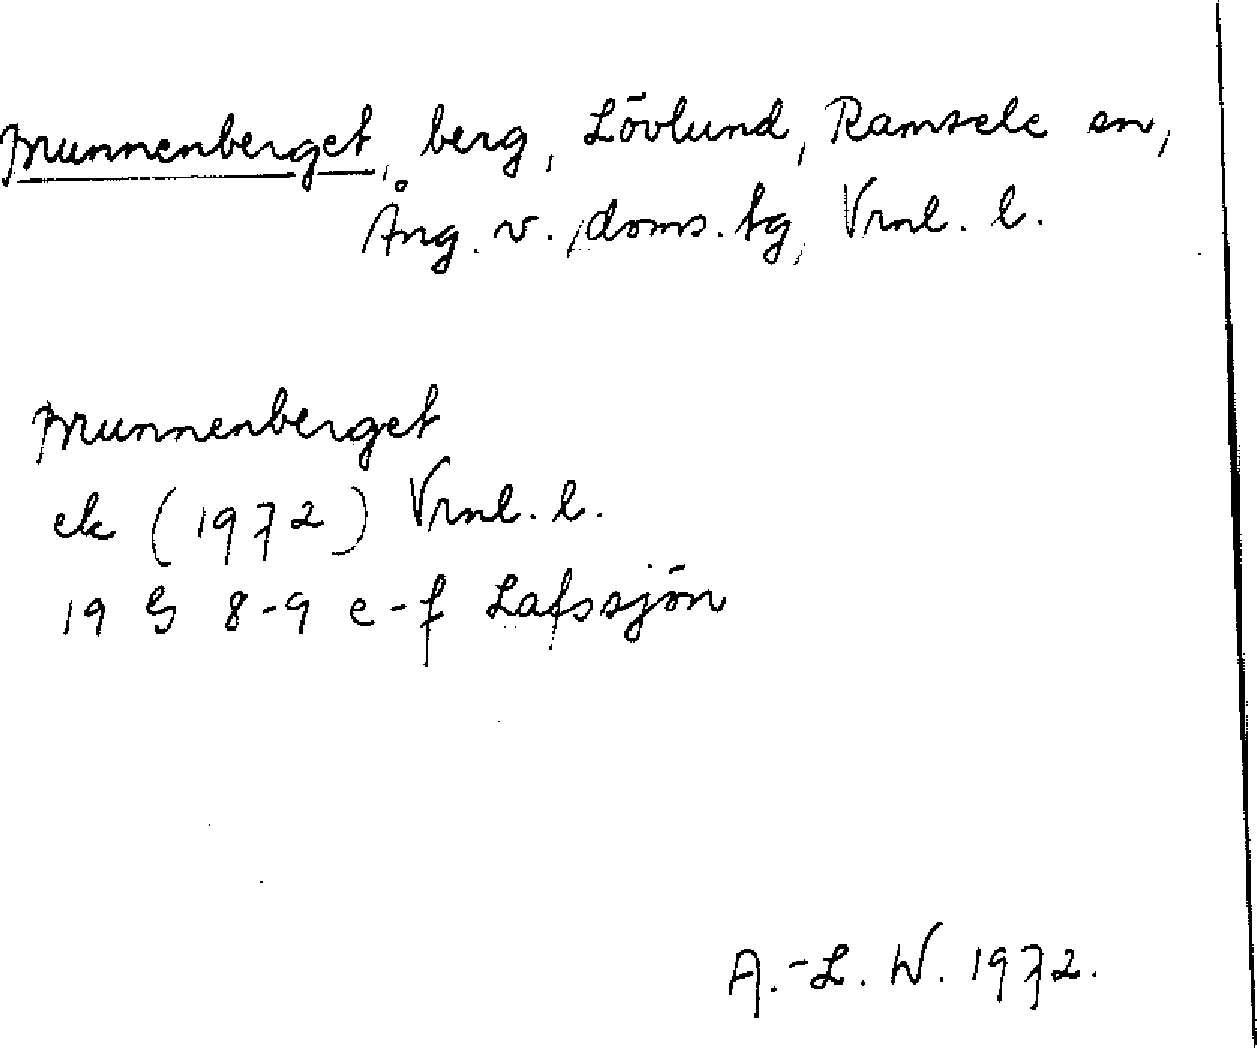 Munnenberget, berg, Lövlund, Ramsele sn,
Ång. v. doms. tg, Vrnl. l.
Munnenberget
ek (1972) Vrnl. l.
19 G 8-9 e-f Lafssjön
A.-L. W. 1972.